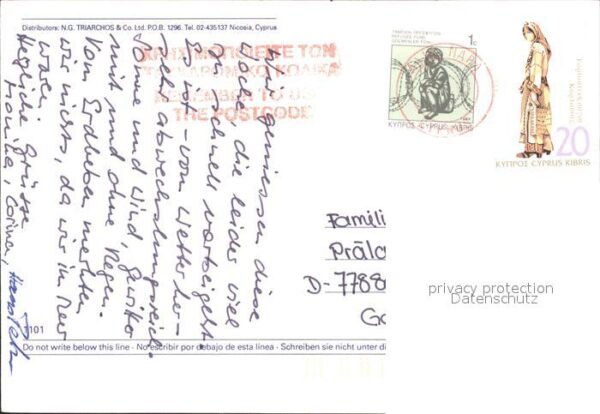 Distributors: N.G. TRIARCHOS & Co. Ltd. P.O.B. 1296. Tel. 02-435137 Nicosia, Cyprus
ΧΡΗΣΙΜΟΠΟΙΕΙΤΕ ΤΟΝ
ΤΑΧΥΔΡΟΜΙΚΟ ΚΩΔΙΚΑ
REMEMBER TO USE
THE POSTCODE
1c
ΚΥΠΡΟΣ CYPRUS KIBRIS
20
ΚΥΠΡΟΣ CYPRUS KIBRIS
Wir geniessen diese
Woche, die leider viel
zu schnell vorbeigeht.
Es ist - vom Wetter her -
sehr abwechslungsreich.
Sonne und Wind, Gewitter
mit und ohne Regen.
Vom Erdbeben merkten
wir nichts, da wir im Meer
waren.
Herzliche Grüsse
Monika, Corina,
Famili
Präla
D-7788
privacy protection
Datenschutz
1101
Do not write below this line - No escribir por debajo de esta línea - Schreiben sie nicht unter di